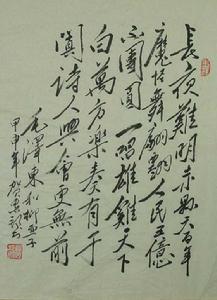 長夜難明赤县天百年
魔怪舞翩翩人民五億
不團圓一唱雄雞天下
白萬方樂奏有于
闐詩人興會更無前
毛澤東和柳亞子
甲申年賀